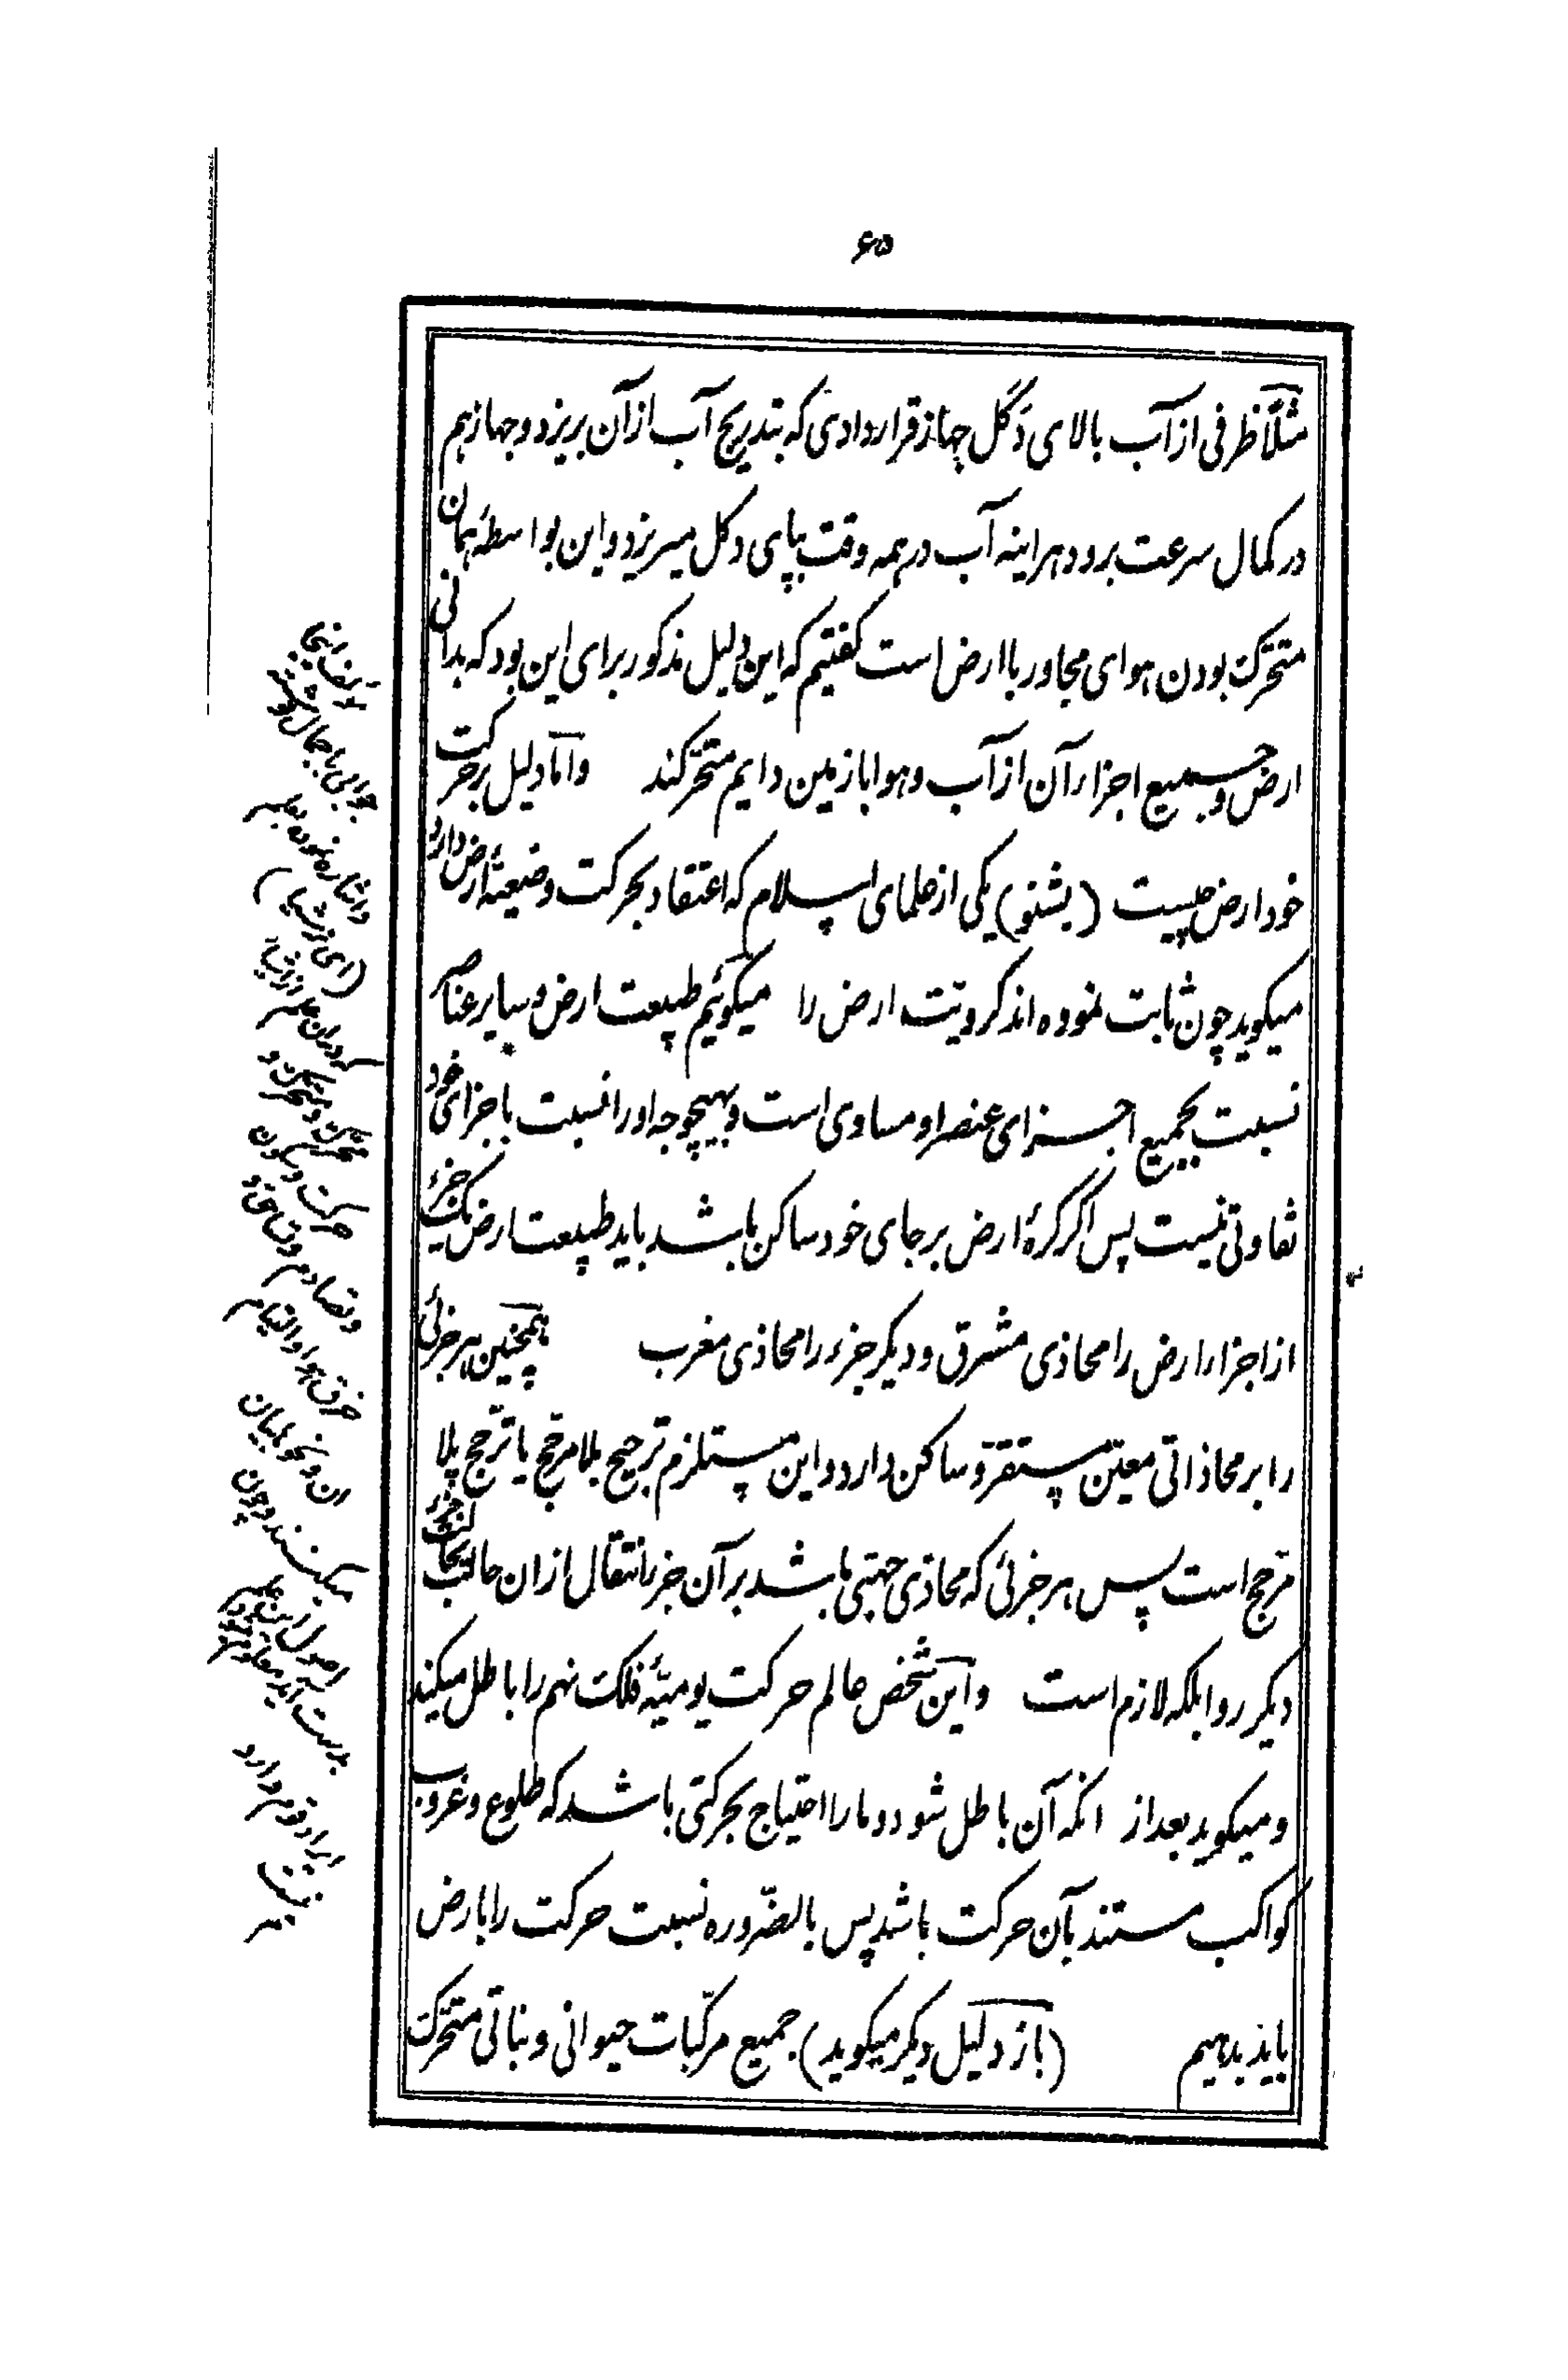 ۶۵
مثلاً ظرفی از آب بالای دگل جهاز قرار دادی که بتدریج آب از آن بریزد و جهاز هم
در کمال سرعت برود هراینه آب در همه وقت بپای دکل میریزد و این بواسطهٔ همان
متحرک بودن هوای مجاور با ارض است کفتیم که این دلیل مذکور برای این بود که بدانی
ارض و جمیع اجزاء آن از آب و هوا با زمین دایم متحرکند و امّا دلیل بر حرکت
خود ارض چیست (بشنو) یکی از علمای اسلام که اعتقاد بحرکت وضیعهٔ ارض دارد
میکوید چون ثابت نموده اند کرویّت ارض را میکوئیم طبیعت ارض و سایر عناصر
نسبت بجمیع اجزای عنصر او مساوی است و بهیچوجه او را نسبت باجزای خود
تفاوتی نیست پس اکر کرهٔ ارض بر جای خود ساکن باشد باید طبیعت ارض یک جزء
از اجزاء ارض را محاذی مشرق و دیکر جزء را محاذی مغرب همچنین هر جزئی
را بر محاذاتی معیّن مستقر و ساکن دارد و این مستلزم ترجیح بلا مرجّح یا ترجّح بلا
مرجّح است پس هر جزئی که محاذی جهتی باشد بر آن جزء انتقال از ان حالت بحالت جزء
دیکر روا بلکه لازم است و این شخص عالم حرکت یومیّهٔ فلک نهم را باطل میکند
و میکوید بعد از انکه آن باطل شود و ما را احتیاج بحرکتی باشد که طلوع و غروب
کواکب مستند بآن حرکت باشد پس بالضّروره نسبت حرکت را بارض
باید بدهیم (باز دلیل دیکر میکوید) جمیع مرکّبات حیوانی و نباتی متحرک
حرکت و سکون
خرق هوا و التیام
میکنند و چون
ایراد قمر دارد
نیست